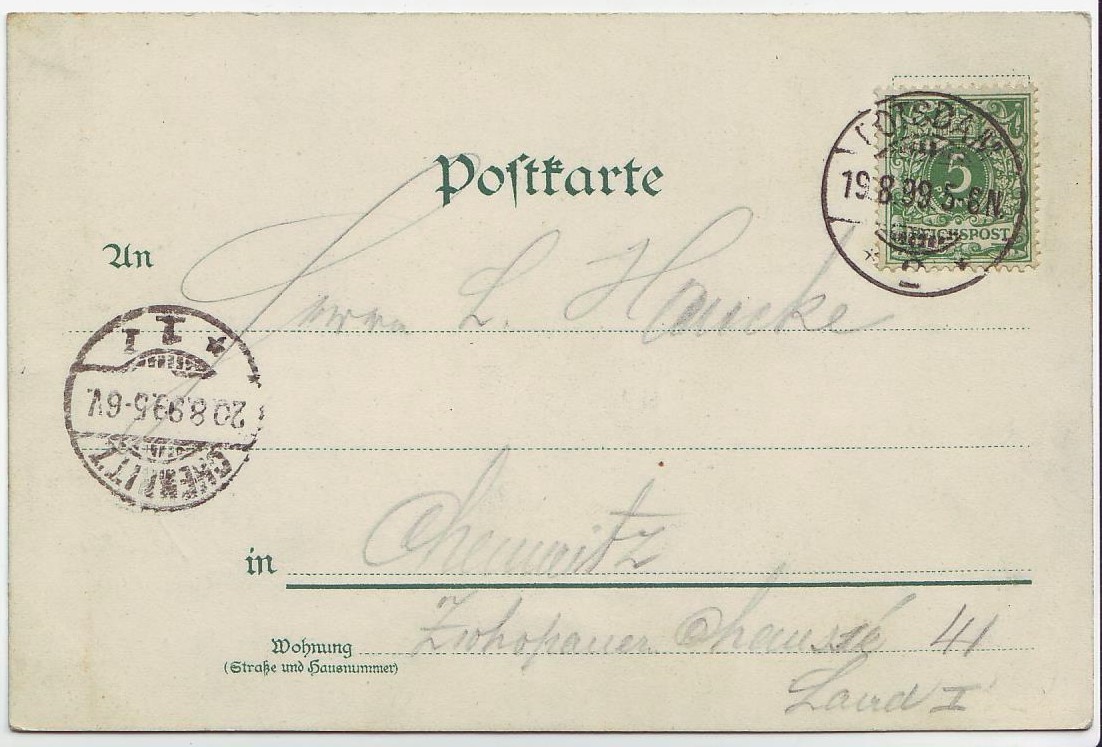 Postkarte
POTSDAM
19.8.99 5-6N.
* 2 *
5
REICHSPOST
An
Herrn L. Haucke
* 1 I
20.8.99.5-6V.
CHEMNITZ
in Chemnitz
Wohnung Zschopauer Chaussé 41
(Straße und Hausnummer)
Laird I